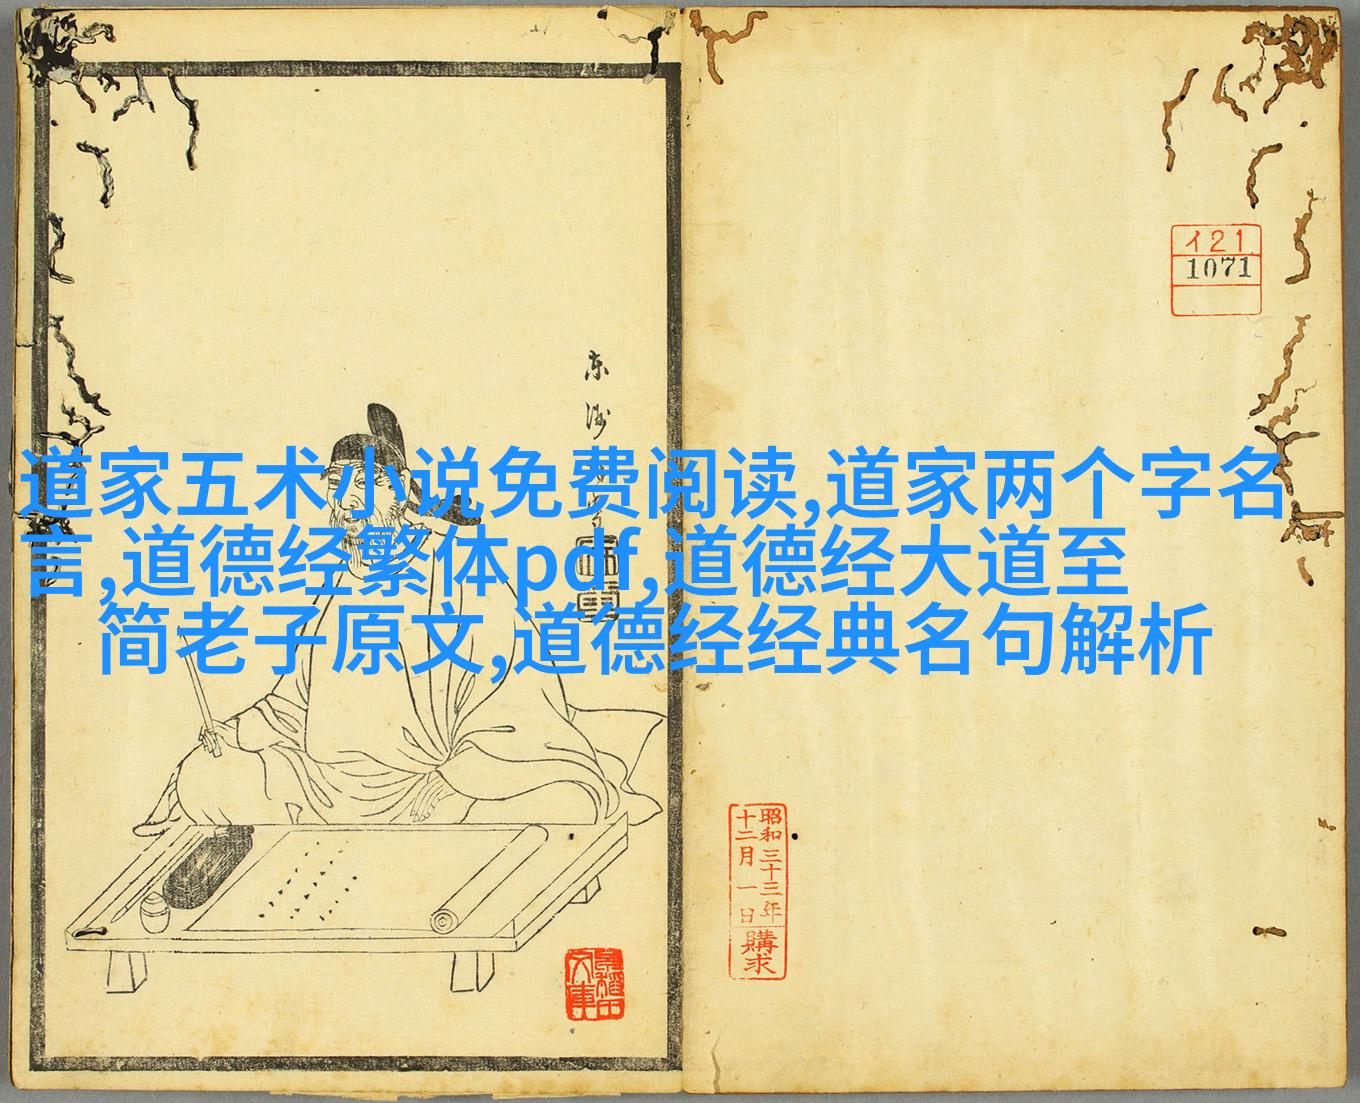 道家五术小说免费阅读,道家两个字名
言,道德经繁体pdf,道德经大道至
简老子原文,道德经经典名句解析
东
イ21
1071
昭和三十三年
十二月一日
購求
文庫